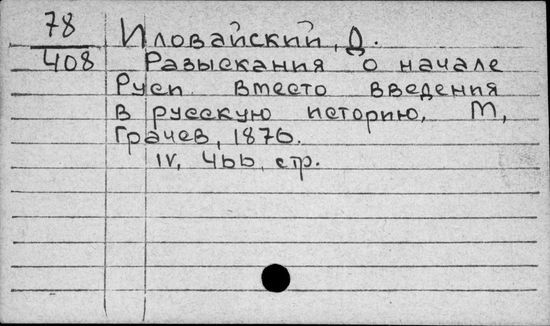 78
408
Иловайский, Д.
Разыскания о начале
Руси вместо введения
в русскую историю, М,
Грачев, 1876.
IV, 466, стр.